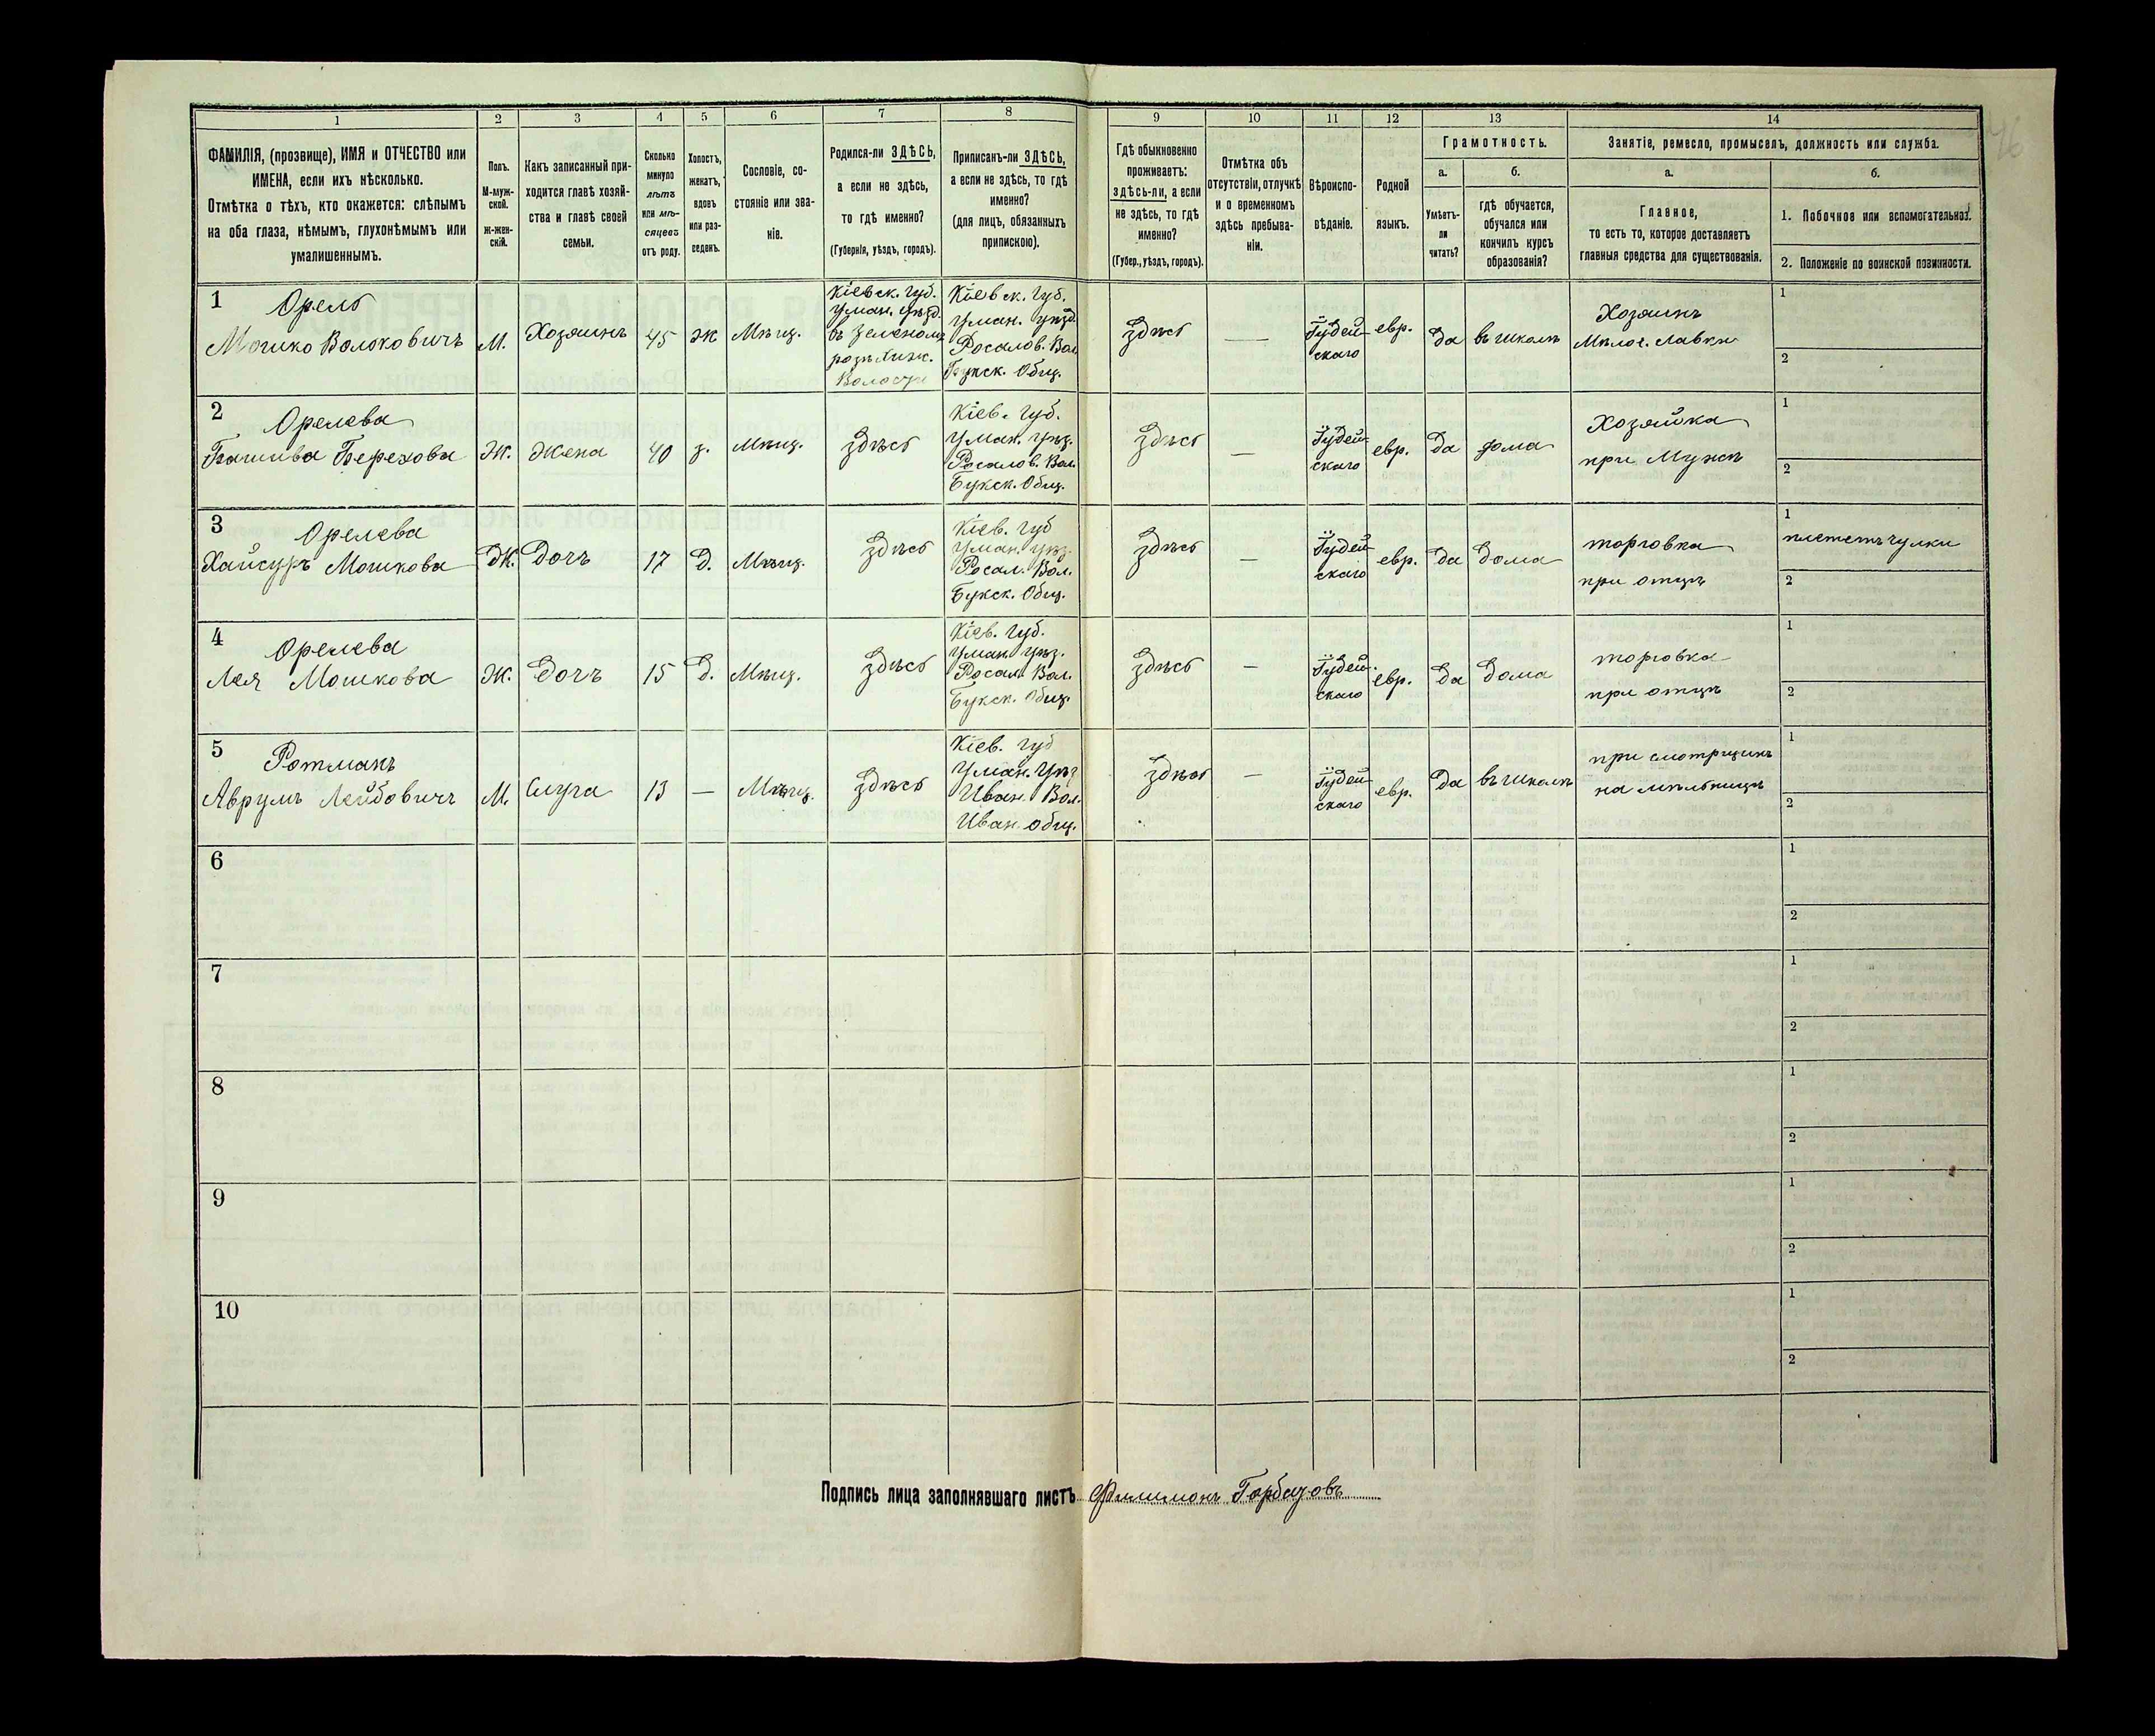 1 2 3 4 5 6 7 8 9 10 11 12 13 14
ФАМИЛІЯ, (прозвище), ИМЯ и ОТЧЕСТВО или
ИМЕНА, если ихъ нѣсколько.
Отмѣтка о тѣхъ, кто окажется: слѣпымъ
на оба глаза, нѣмымъ, глухонѣмымъ или
умалишеннымъ.
Полъ.
М-муж-
ской.
Ж-жен-
скій.
Какъ записанный при-
ходится главѣ хозяй-
ства и главѣ своей
семьи.
Сколько
минуло
лѣтъ
или мѣ-
сяцевъ
отъ роду.
Холостъ,
женатъ,
вдовъ
или раз-
веденъ.
Сословіе, со-
стояніе или зва-
ніе.
Родился-ли ЗДѢСЬ,
а если не здѣсь,
то гдѣ именно?
(Губернія, уѣздъ, городъ).
Приписанъ-ли ЗДѢСЬ,
а если не здѣсь, то гдѣ
именно?
(для лицъ, обязанныхъ
припискою).
Гдѣ обыкновенно
проживаетъ:
здѣсь-ли, а если
не здѣсь, то гдѣ
именно?
(Губер., уѣздъ, городъ).
Отмѣтка объ
отсутствіи, отлучкѣ
и о временномъ
здѣсь пребыва-
ніи.
Вѣроиспо-
вѣданіе.
Родной
языкъ.
Грамотность.
а.
Умѣетъ-
ли
читать?
б.
гдѣ обучается,
обучался или
кончилъ курсъ
образованія?
Занятіе, ремесло, промыселъ, должность или служба.
а.
Главное,
то есть то, которое доставляетъ
главныя средства для существованія.
б.
1. Побочное или вспомогательное.
2. Положеніе по воинской повинности.
1
Орель
Мошко Волоковичъ
М.
Хозяинъ
45
ж
Мѣщ.
Кіевск. Губ.
Уман. уѣзд.
въ Зеленомъ
Волости
Кіевск. Губ.
Уман. уѣзд
Росалов. Вол.
Букск. Общ.
здѣсь
—
Іудей-
скаго
евр.
да
въ школѣ
Хозяинъ
Мѣлоч. Лавки
1
2
2
Орелева
Башива Берехова
Ж.
Жена
40
з.
Мѣщ.
здѣсь
Кіев. Губ.
Уман. уѣз.
Росалов. Вол.
Букск. Общ.
здѣсь
—
Іудей-
скаго
евр.
да
дома
Хозяйка
при Мужѣ
1
2
3
Орелева
Хайсуръ Мошкова
Ж.
Дочъ
17
Д.
Мѣщ.
здѣсь
Кіев. Губ
Уман. уѣз.
Росал. Вол.
Букск. Общ.
здѣсь
—
Іудей
скаго
евр.
да
дома
торговка
при отцѣ
1
плететъ чулки
2
4
Орелева
Лея Мошкова
Ж.
Дочъ
15
Д.
Мѣщ.
здѣсь
Кіев. Губ.
Уман. уѣз.
Росал. Вол.
Букск. Общ.
здѣсь
—
Іудей-
скаго
евр.
да
дома
торговка
при отцѣ
1
2
5
Ротманъ
Аврумъ Лейбовичъ
М.
Слуга
13
—
Мѣщ.
здѣсь
Кіев. Губ
Уман. Уѣз
Иван. Вол.
Иван. общ.
здѣсь
—
Іудей-
скаго
евр.
да
въ школѣ
при смотрщикѣ
на мѣльницѣ
1
2
6
1
2
7
1
2
8
1
2
9
1
2
10
1
2
Подпись лица заполнявшаго листъ Филимонъ Горбацовъ